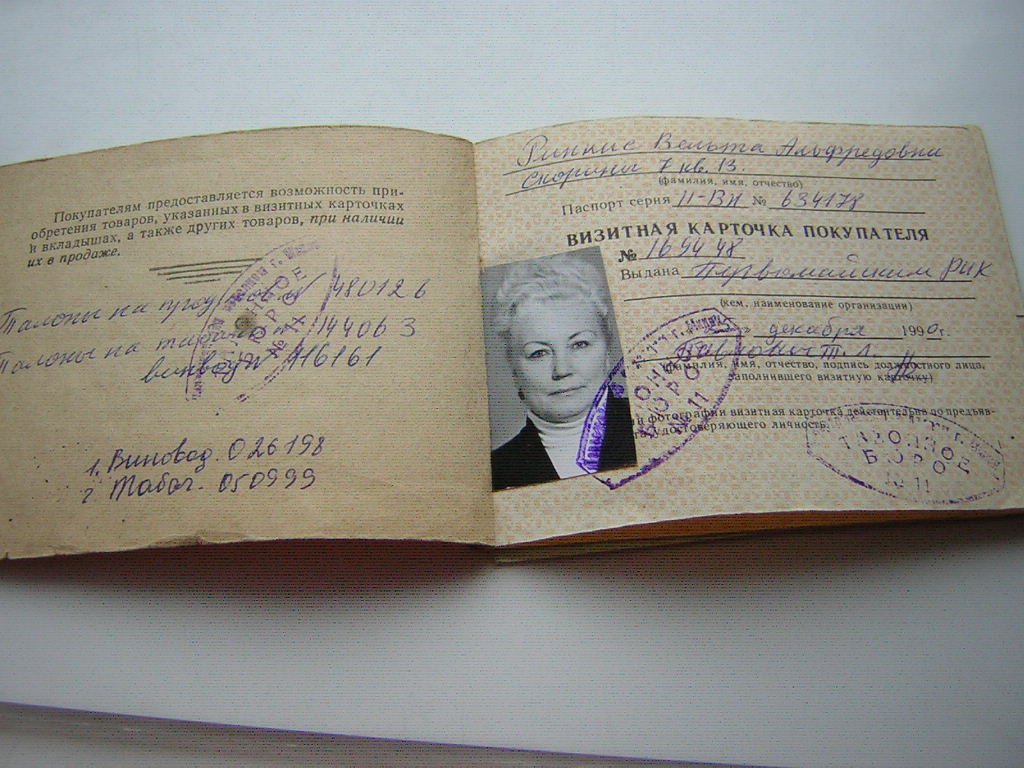 Покупателям предоставляется возможность при-
обретения товаров, указанных в визитных карточках
и вкладышах, а также других товаров, при наличии
их в продаже.
Талоны на 480126
Талоны на 144063
916161
1. Виновод. 026198
2. Табач. 050999
Риннис Вельта Альфредовна
Скорины 7 кв. 13.
(фамилия, имя, отчество)
Паспорт серия II-ВН № 634178
ВИЗИТНАЯ КАРТОЧКА ПОКУПАТЕЛЯ
№ 169448
Выдана Первомайским РИК
(кем, наименование организации)
декабря 1990г.
Т. Л.
(фамилия, имя, отчество, подпись должностного лица,
заполнившего визитную карточку)
фотографии визитная карточка действительна по предъяв-
удостоверяющего личность.
БЮРО
№ 11
БЮРО
№ 11
ТАЛОННОЕ
БЮРО
№ 11